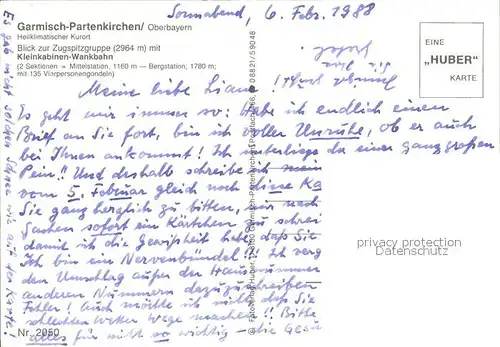 Garmisch-Partenkirchen/ Oberbayern
Heilklimatischer Kurort
Blick zur Zugspitzgruppe (2964 m) mit
Kleinkabinen-Wankbahn
(2 Sektionen = Mittelstation, 1160 m — Bergstation, 1780 m;
mit 135 Vierpersonengondeln)
Sonnabend, 6. Febr. 1988
EINE
„HUBER"
KARTE
Meine liebe Liane!
Es geht mir immer so: Habe ich endlich einen
Brief an Sie fort, bin ich voller Unruhe, ob er auch
bei Ihnen ankommt! Ich unterliege da einer ganz großen
Pein!! Und deshalb schreibe ich
vom 5. Februar gleich noch diese Ka
Sie ganz herzlich zu bitten,
Sachen sofort ein Kärtchen zu schrei
damit ich die Gewißheit habe, daß Sie
Ich bin ein Nervenbündel! Ich verg
den Umschlag außer der Hausnummer
anderen Nummern dazuzuschreiben
Fehler! Auch möchte ich nicht daß Sie
schlechten Wetter Wege machen!! Bitte
alles für nicht so wichtig - die Ges
Es gab nicht solchen Schnee wie auf der Karte!
Nr. 2050
privacy protection
Datenschutz